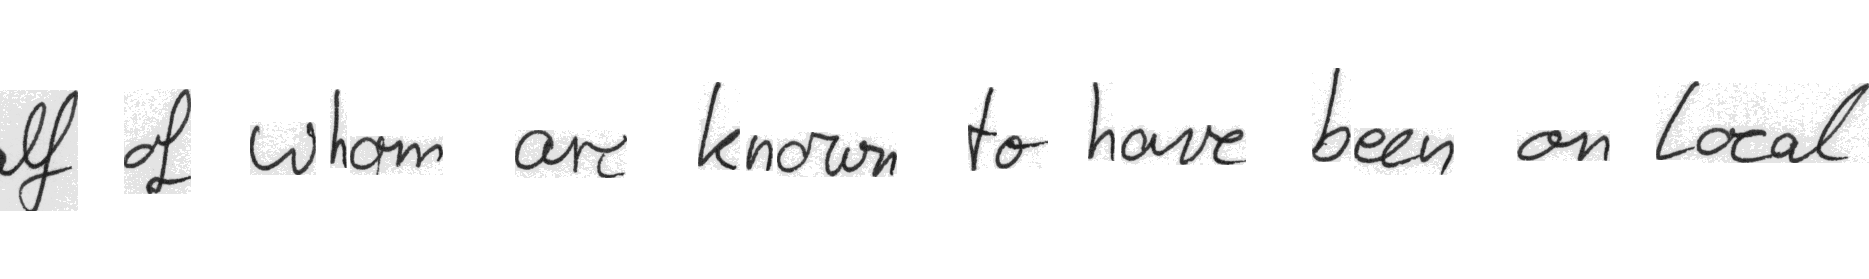 of whom are known to have been on Local